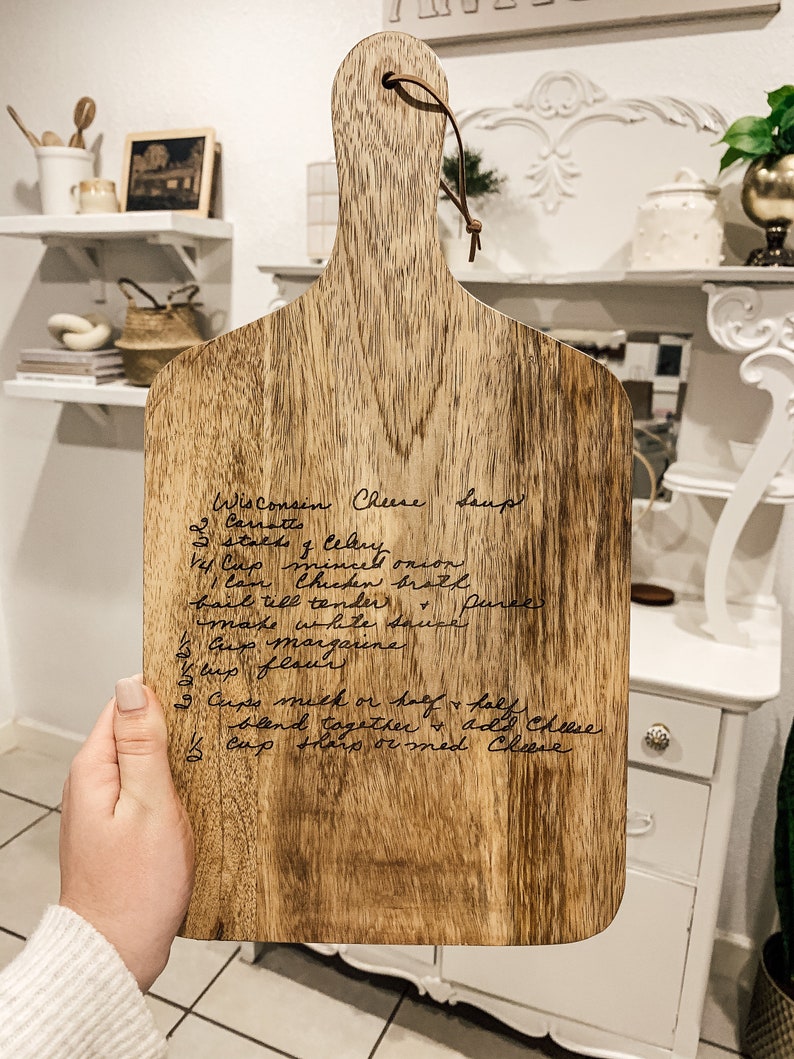 Wisconsin Cheese Soup
2 Carrotts
2 stalks of Celery
1/4 Cup minced onion
1 Can Chicken broth
boil till tender + puree
make white sauce
1/2 Cup margarine
1/2 cup flour
2 Cups milk or half + half
blend together + add Cheese
1/2 cup sharp or med Cheese